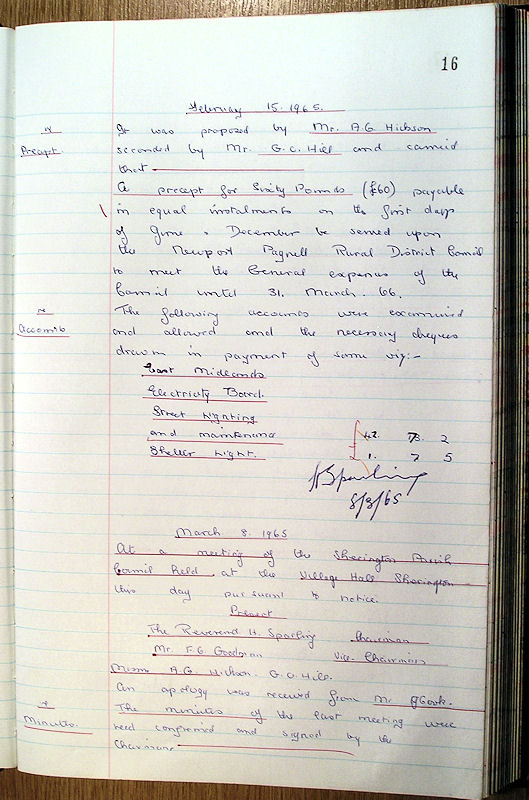 16
February 15. 1965.
re
Precept.
It was proposed by Mr. A.G. Hickson
seconded by Mr. G.C. Hill and carried
that
A precept for Sixty Pounds (£60) payable
in equal instalments on the first days
of June & December be served upon
the Newport Pagnell Rural District Council
to meet the General expenses of the
Council until 31. March. 66.
re
Accounts
The following accounts were examined
and allowed and the necessary cheques
drawn in payment of same viz:-
East Midlands
Electricity Board.
Street Lighting
and maintenance £42. 13. 2
Shelter Light. 1. 7 5
H Sparling
8/3/65
March 8. 1965
At a meeting of the Sherington Parish
Council held at the Village Hall Sherington
this day pursuant to notice.
Present
The Reverend H. Sparling Chairman
Mr. F.G. Goodman Vice Chairman
Messrs A.G. Hickson. G.C. Hill.
An apology was received from Mr. Cook.
re
Minutes.
The minutes of the last meeting were
read confirmed and signed by the
Chairman